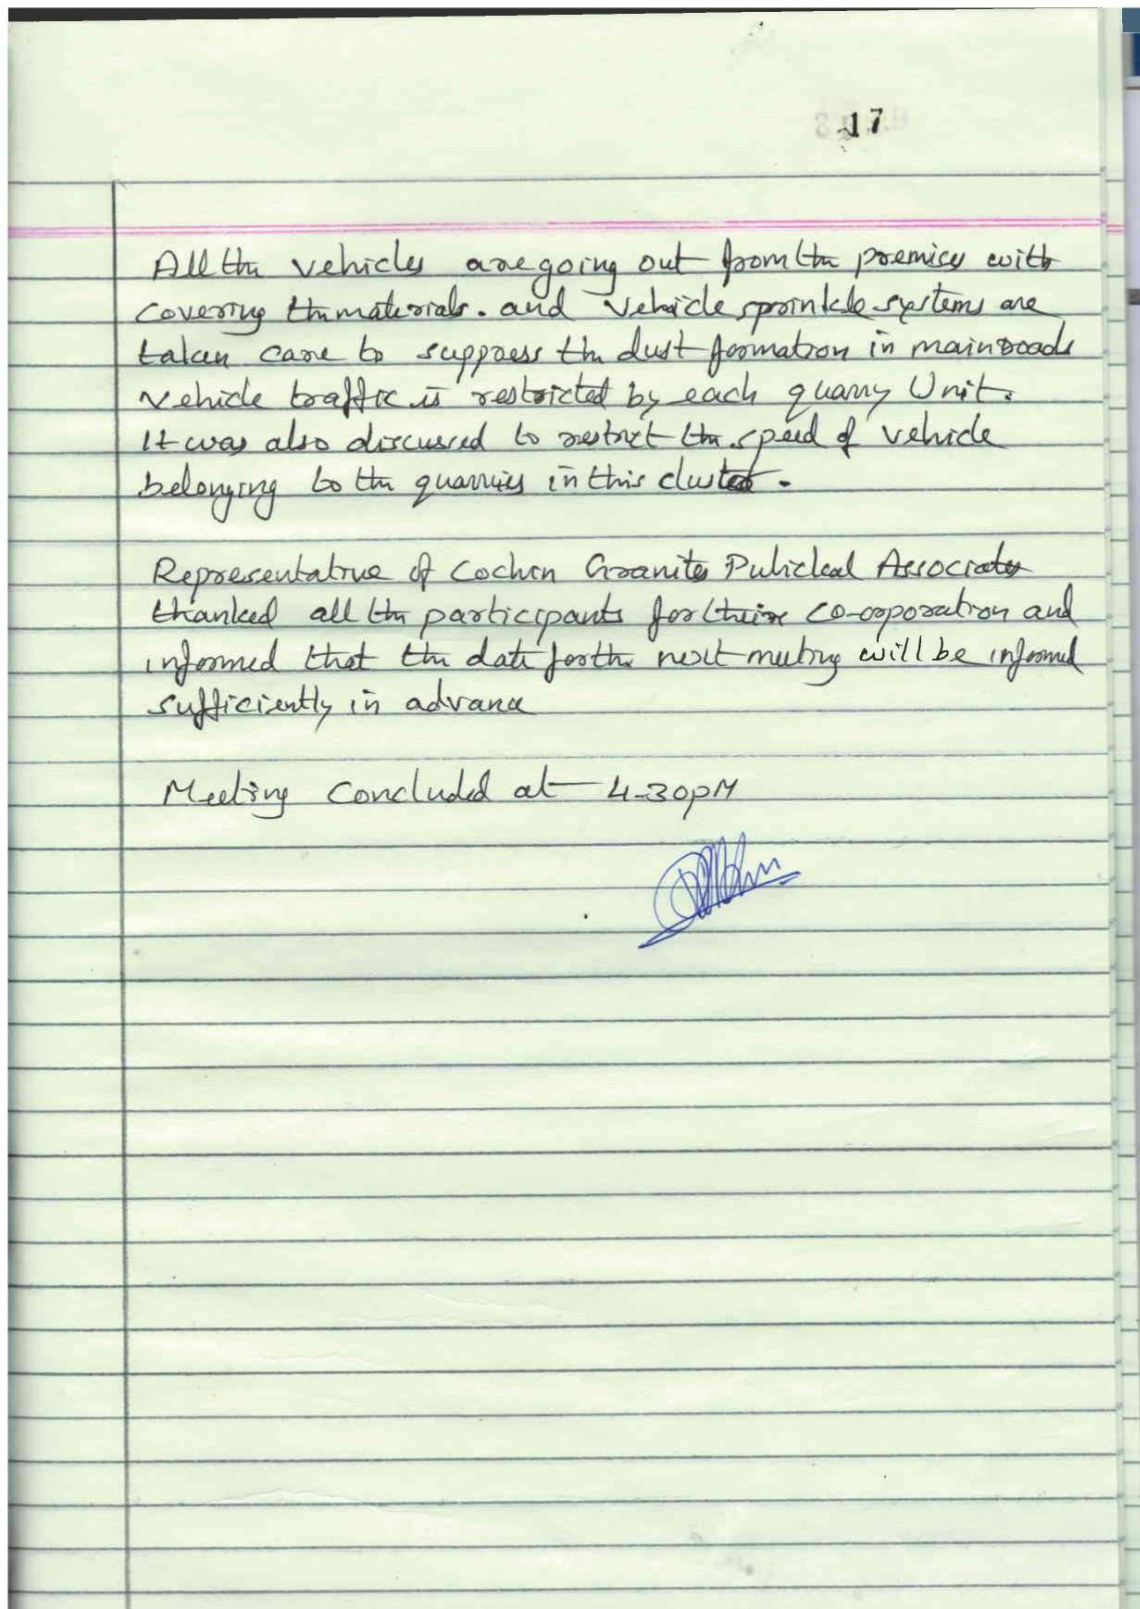 17
All the vehicles are going out from the premises with
covering the materials. and vehicle sprinkle systems are
taken care to suppress the dust formation in main roads
vehicle traffic is restricted by each quarry Unit.
It was also discussed to restrict the speed of vehicle
belonging to the quarries in this cluster.
Representative of Cochin Granites Associates
thanked all the participants for their co-orporation and
informed that the date for the next meeting will be informed
sufficiently in advance
Meeting Concluded at 4-30pM